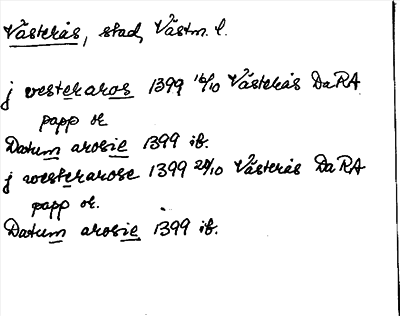 Västerås, stad, Västm. l.
j vesteraros 1399 16/10 Västerås DaRA
papp or
Datum arosie 1399 ib.
j westerarose 1399 28/10 Västerås DaRA
papp or.
Datum arosie 1399 ib.